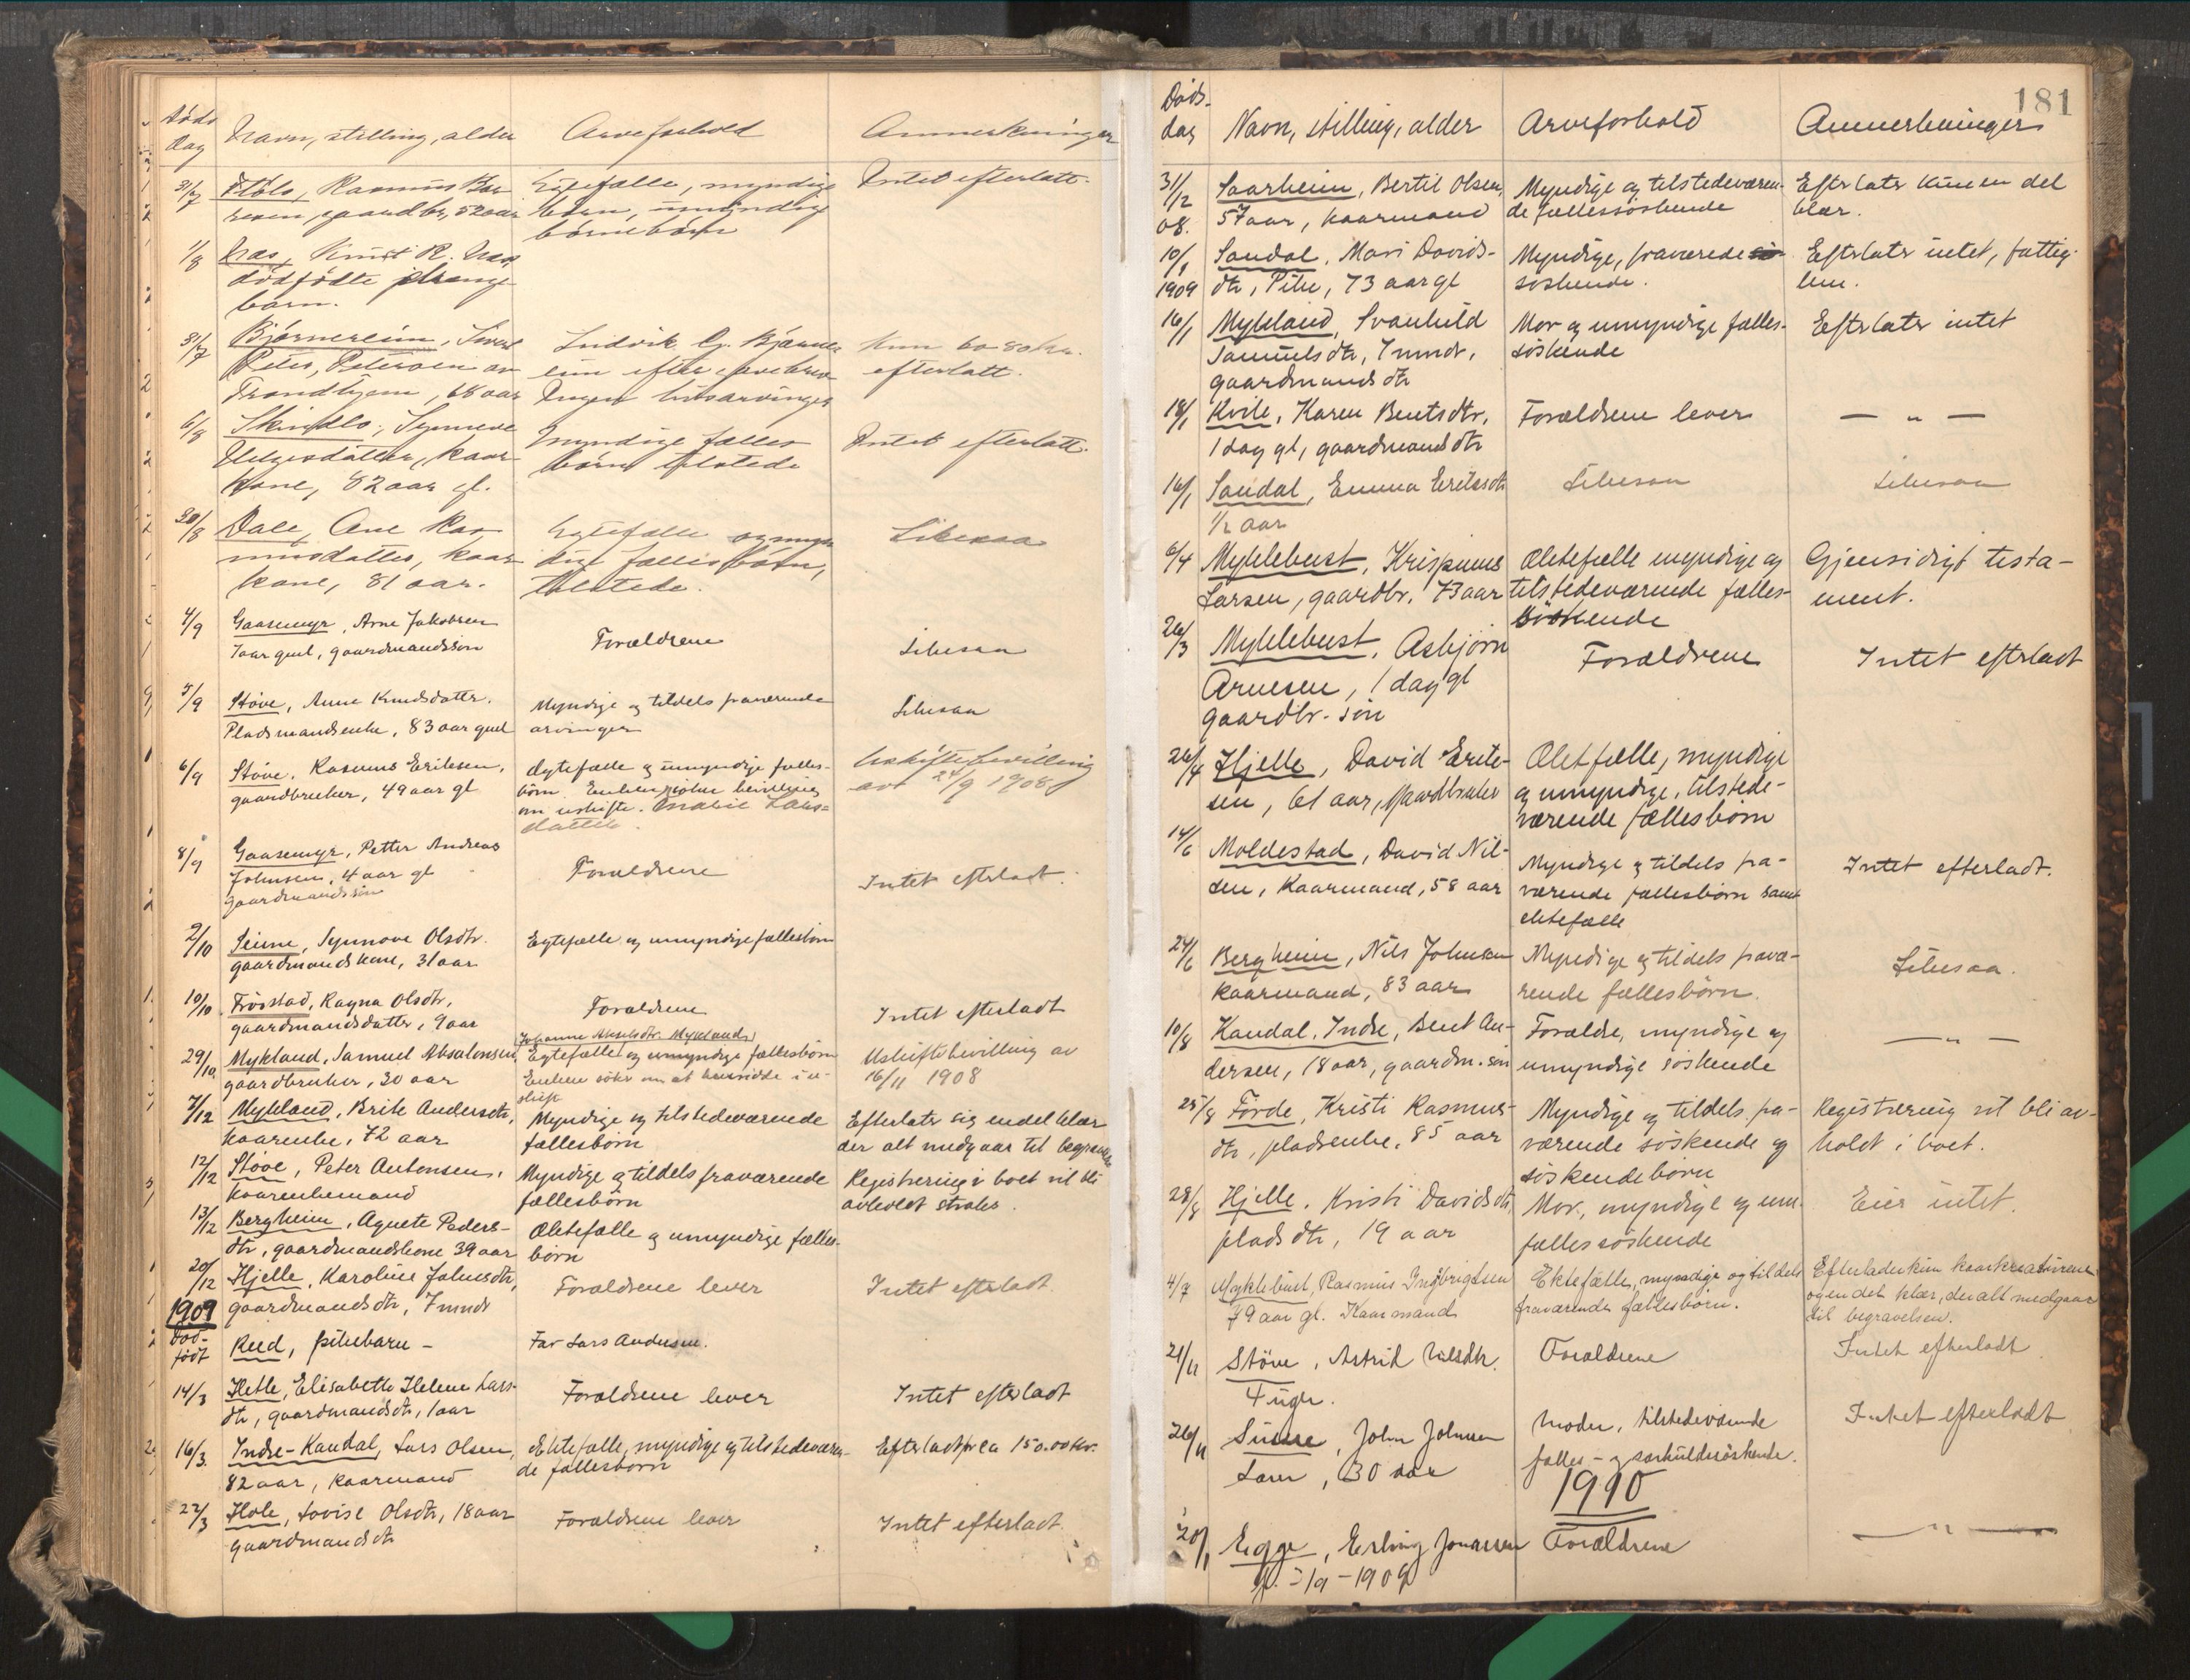 Døds
dag
Navn, stilling, alder
Arveforhold
Anmerkninger
31/7
Rasmus
gaardbr, 52 aar
Egtefælle, myndige
børn, umyndig
børnebørn
Intet efterlatt.
1/8
Naes, Knut R. Naes
dødfødte
barn.
31/7
Bjørnereim,
Peter, Petersen av
Trondhjem, 68 aar
Ludvik G. Bjørner
eim efter
Ingen livsarvinger
Kun 60-80 kr.
efterlatt.
6/8
Synneve
Helgesdatter, kaar
kone, 82 aar gl.
Myndige fælles
børn tilstede
Intet efterlatt.
30/8
Dale, Ane Ras
musdatter, kaar
kone, 81 aar.
Egtefælle og myn
dige fællesbørn,
tilstede.
Likesaa
4/9
Gaasemyr, Arne Jakobsen
1 aar gml, gaardmandssøn
Forældrene
Likesaa
5/9
Støve, Anne Knudsdatter,
Pladsmandsenke, 83 aar gml
Myndige og tildels fraværende
arvinger
Likesaa
6/9
Støve, Rasmus Eriksen,
gaardbruker, 49 aar gl
Ægtefælle og umyndige fælles-
børn. Enken søker bevilling
om uskifte. Lars=
datter.
Uskiftebevilling
av 24/9 1908
8/9
Gaasemyr, Petter Andreas
Johnsen, 4 aar gl
gaardmandssøn
Forældrene
Intet efterladt.
2/10
Seime, Synnove Olsdtr.
gaardmandskone, 31 aar
Egtefælle og umyndige fællesbørn
10/10
Frøstad, Ragna Olsdtr,
gaardmandsdatter, 9 aar
Forældrene
Intet efterladt
29/10
Mykland, Samuel Absalonsen,
gaardbruker, 30 aar
Johanne Akselsdtr. Mykland
Egtefælle og umyndige fællesbørn
Enken søker om at hensidde i u-
skift
Uskiftebevilling av
16/11 1908
7/12
Mykland, Brite Andersdtr,
kaarenke, 72 aar
Myndige og tilstedeværende
fællesbørn
Efterlater sig endel klær
der alt medgaar til begravelse
12/12
Støve, Peter Antonsen,
kaarenkemand
Myndige og tildels fraværende
fællesbørn
Registrering i boet vil bli
avholdt straks.
13/12
Bergheim, Agnete Peders-
dtr, gaardmandskone 39 aar
Ektefælle og umyndige fælles-
børn
20/12
Hjelle, Karoline Johnsdtr,
gaardmandsdtr, 7 mndr
Forældrene lever
Intet efterladt
1909
Død-
født
Reed, pikebarn -
Far Lars Andersen.
14/3
Hetle, Elisabeth Helene Lars-
dtr, gaardmandsdtr, 1 aar
Forældrene lever
Intet efterladt
16/3.
Indre-Kandal, Lars Olsen,
82 aar, kaarmand
Ektefælle, myndige og tilstedeværen-
de fællesbørn
Efterladt ca 150.00 kr.
22/3
Hole, Lovise Olsdtr, 18 aar
gaardmandsdtr
Forældrene lever
Intet efterladt
181
Døds-
dag
Navn, stilling, alder
Arveforhold
Anmerkninger
31/12
08.
Saarheim, Bertil Olsen,
57 aar, kaarmand
Myndige og tilstedeværen-
de fællessøskende
Efterlater kun en del
klær.
10/1
1909
Sandal, Mari Davids-
dtr, Pike, 73 aar gl
Myndige, fraværende
søskende.
Efterlater intet, fattig-
lem.
16/1
Mykland, Svanhild
Samuelsdtr, 7 mndr,
gaardmandsdtr
Mor og umyndige fælles-
søskende
Efterlater intet
18/1
Kvile, Karen Bentsdtr,
1 dag gl, gaardmandsdtr
Forældrene lever
— „ —
16/1
Sandal, Emma Eriksdtr
1/2 aar
Likesaa
Likesaa
6/4
Myklebust, Krispinus
Larsen, gaardbr. 73 aar
Ektefælle myndige og
tilstedeværende fælles-
søskende
Gjensidigt testa-
ment.
26/3
Myklebust, Asbjørn
Arnesen, 1 dag gl
gaardbr. søn
Forældrene
Intet efterladt
26/4
Hjelle, David Erik-
sen, 61 aar, Gaardbruker
Ektefælle, myndige
og umyndige, tilstede-
værende fællesbørn
14/6
Moldestad, David Nil-
sen, Kaarmand, 58 aar
Myndige og tildels fra-
værende fællesbørn samt
ektefælle
Intet efterladt.
24/6
Bergheim, Nils Johnsen
kaarmand, 83 aar
Myndige og tildels fravæ-
rende fællesbørn.
Likesaa.
10/8
Kandal, Indre, Bent An-
dersen, 18 aar, gaardm. søn
Forældre, myndige og
umyndige søskende
— „ —
25/8
Førde, Kristi Rasmus-
dtr, pladsenke, 85 aar
Myndige og tildels fra-
værende søskende og
søskendebørn
Registrering vil bli av-
holdt i boet.
28/8
Hjelle, Kristi Davidsdtr,
pladsdtr, 19 aar
Mor, myndige og um.
fællessøskende
Eier intet.
4/7
Myklebust, Rasmus Ingbrigtsen
79 aar gl. Kaarmand
Ektefælle, myndige og tildels
fraværende fællesbørn.
Efterlader kun kaarkreaturene
og en del klær, der alt medgaar
til begravelsen.
21/11
Støve, Astrid Nilsdtr.
4 uger.
Forældrene
Intet efterladt
26/11
John Johnsen
30 aar
Moder, tilstedeværende
fælles- og særkuldsøskende.
Intet efterladt
1910
20/1
Egge, Erling Jonassen
Forældrene
— „ —
1909